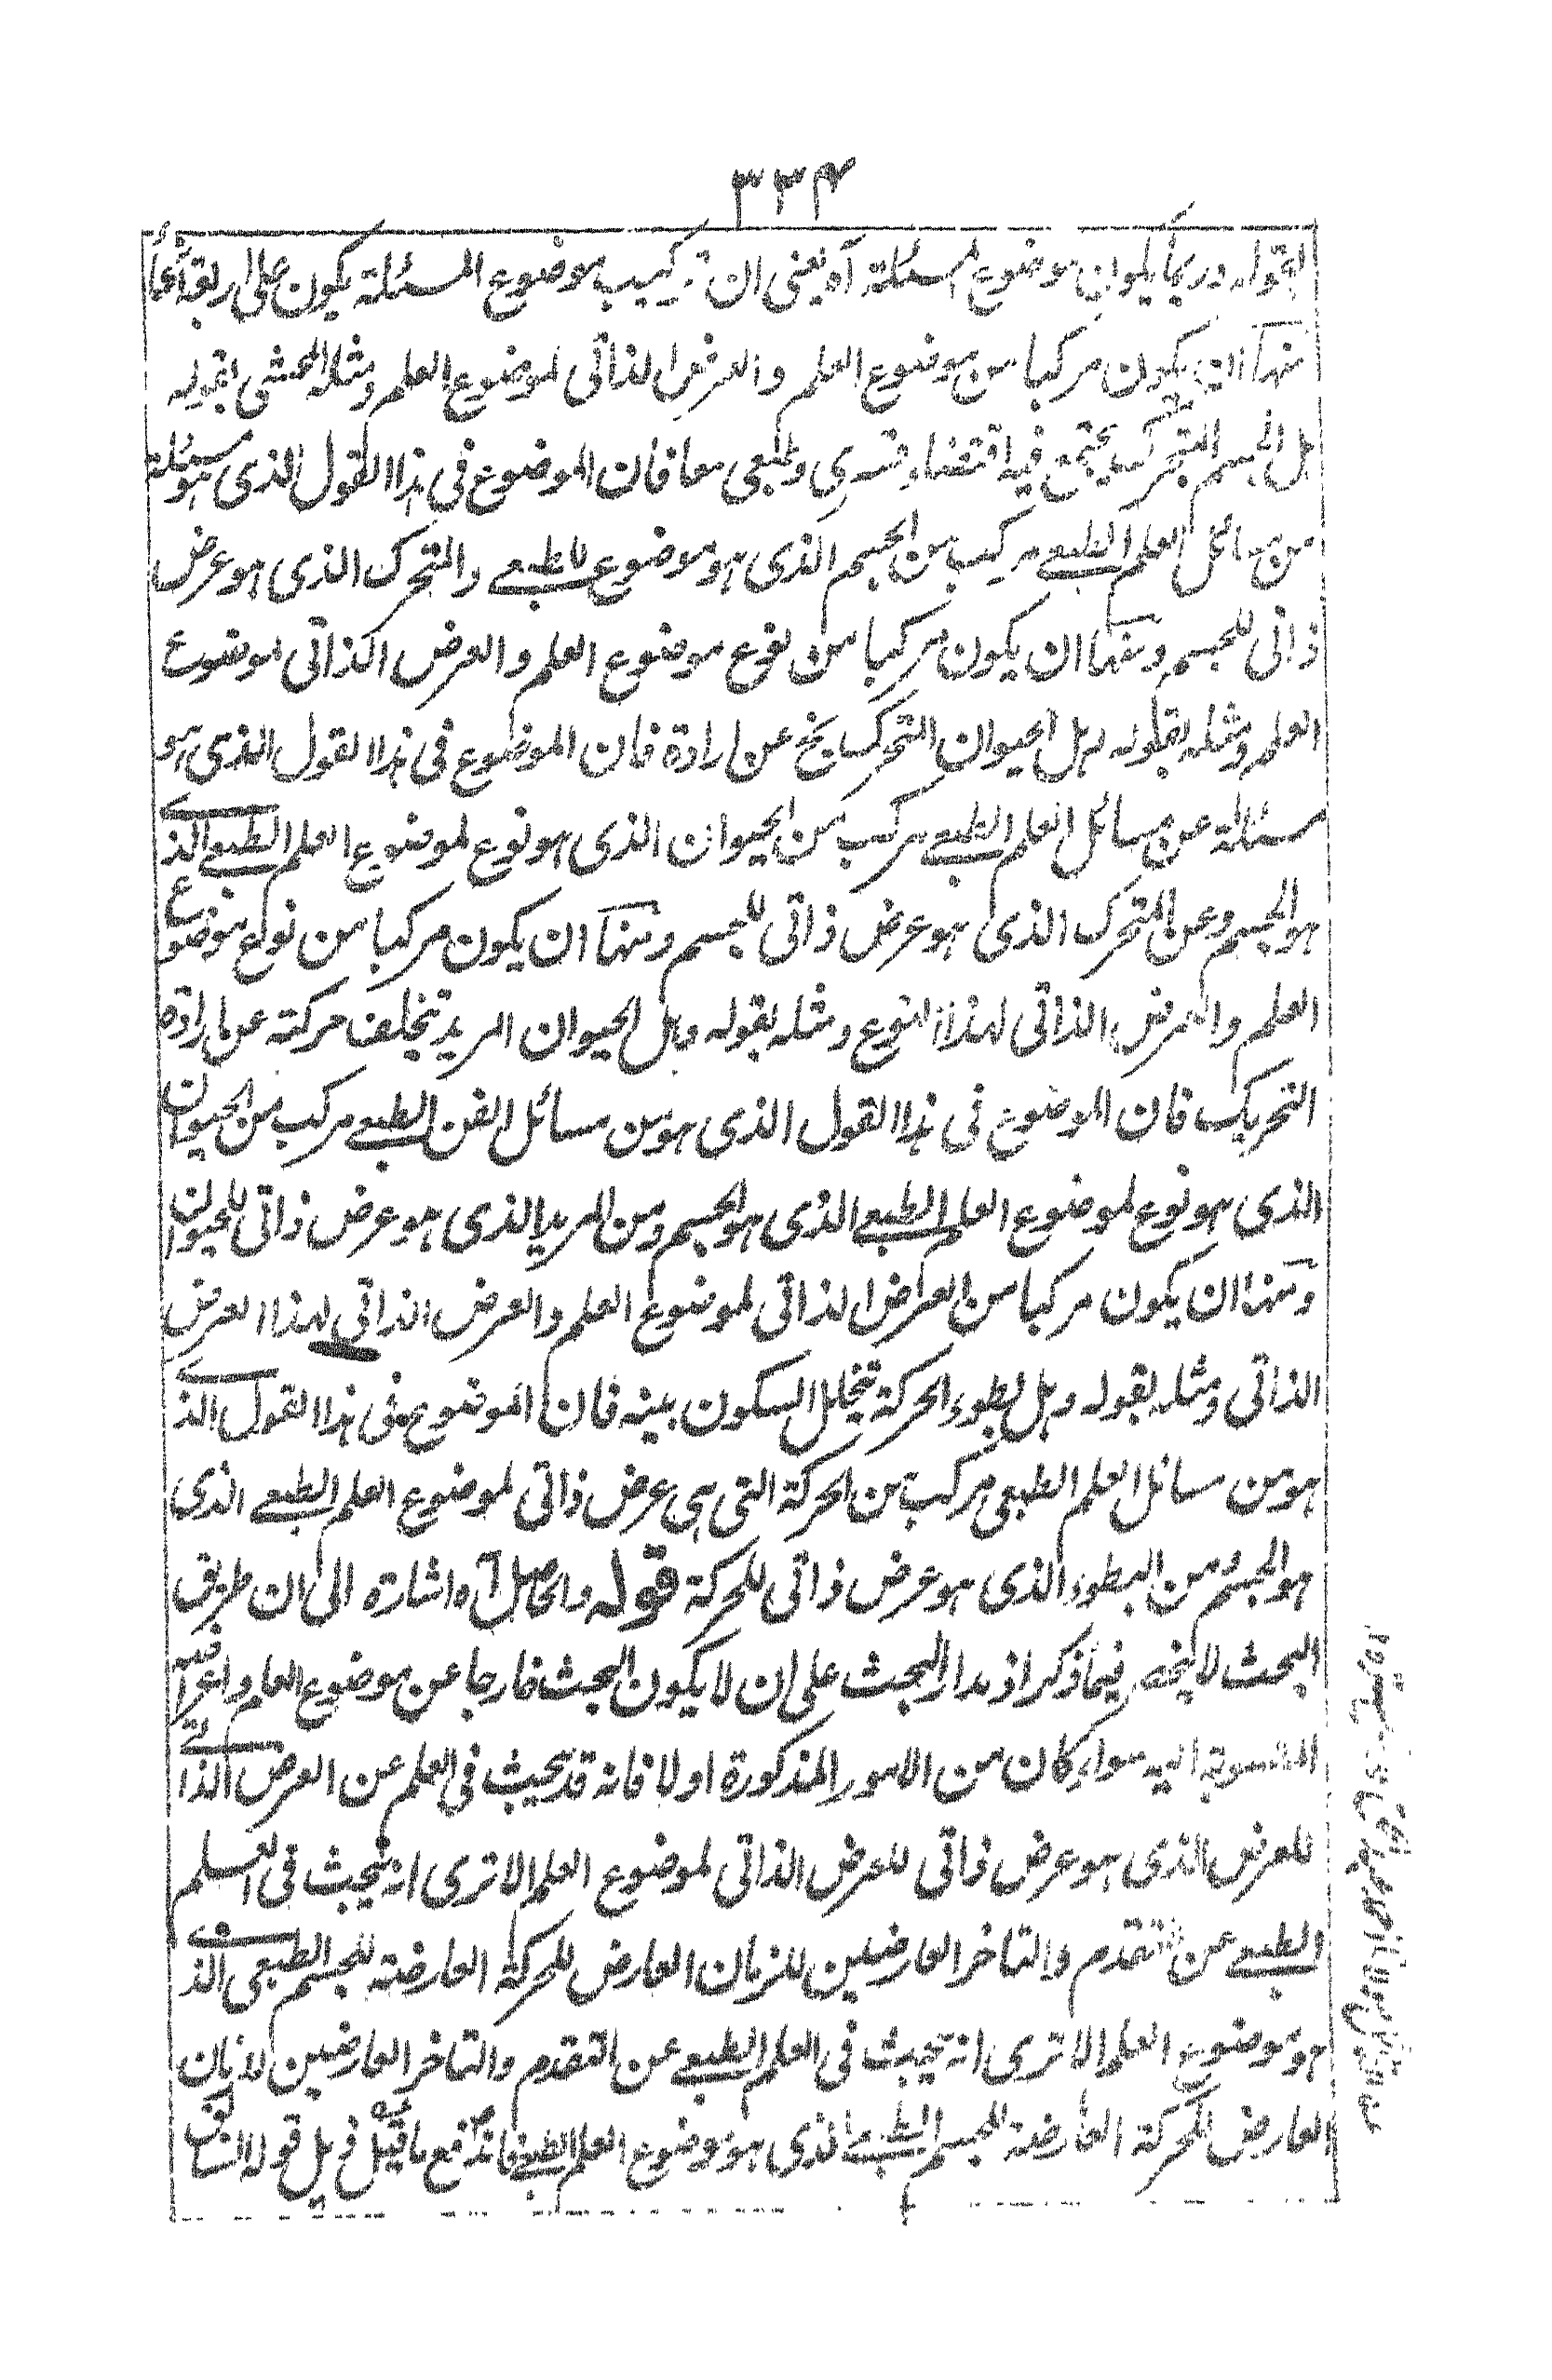 ٣٣٤
بقوله وربما يكون موضوع المسئلة آه يعني ان تركيب موضوع المسئلة يكون على اربعة أنحاء
منها ان يكون مركبا من موضوع العلم والعرض الذاتي لموضوع العلم ومثله المحشي بقوله
هل الجسم المتحرك يجتمع فيه اقتضاء قسري وطبعي معا فان الموضوع في هذا القول الذي هو مسئلة
من مسائل العلم الطبعي مركب من الجسم الذي هو موضوع للطبعي والمتحرك الذي هو عرض
ذاتي للجسم ومنها ان يكون مركبا من نوع موضوع العلم والعرض الذاتي لموضوع
العلم ومثله بقوله هل الحيوان المتحرك عن ارادة فان الموضوع في هذا القول الذي هو
مسئلة من مسائل العلم الطبعي مركب من الحيوان الذي هو نوع لموضوع العلم الطبعي الذي
هو الجسم وعن المتحرك الذي هو عرض ذاتي للجسم ومنها ان يكون مركبا من نوع موضوع
العلم والعرض الذاتي لهذا النوع ومثله بقوله وهل الحيوان المريد تتخلف حركته عن ارادة
التحريك فان الموضوع في هذا القول الذي هو من مسائل الفن الطبعي مركب من الحيوان
الذي هو نوع لموضوع العلم الطبعي الذي هو الجسم ومن المريد الذي هو عرض ذاتي للحيوان
ومنها ان يكون مركبا من العرض الذاتي لموضوع العلم والعرض الذاتي لهذا العرض
الذاتي ومثله بقوله وهل لبطوء الحركة تتخلل السكون بينه فان الموضوع في هذا القول الذي
هو من مسائل العلم الطبعي مركب من الحركة التي هي عرض ذاتي لموضوع العلم الطبعي الذي
هو الجسم ومن البطوء الذي هو عرض ذاتي للحركة قوله والحاصل آه اشارة الى ان طريق
البحث لا ينحصر فيما ذكر اذ مدار البحث على ان لا يكون البحث خارجا عن موضوع العلم واعراضه
المنسوبة اليه سواء كان من الامور المذكورة اولا فانه قد يبحث في العلم عن العرض الذاتي
للعرض الذي هو عرض ذاتي للعرض الذاتي لموضوع العلم الا ترى انه يبحث في العلم
الطبعي عن التقدم والتاخر العارضين للزمان العارض للحركة العارضة للجسم الطبعي الذي
هو موضوع العلم الا ترى انه يبحث في العلم الطبعي عن التقدم والتاخر العارضين للزمان
العارض للحركة العارضة للجسم الطبعي الذي هو موضوع العلم الطبعي فاندفع ما قيل في بل قوله السابق